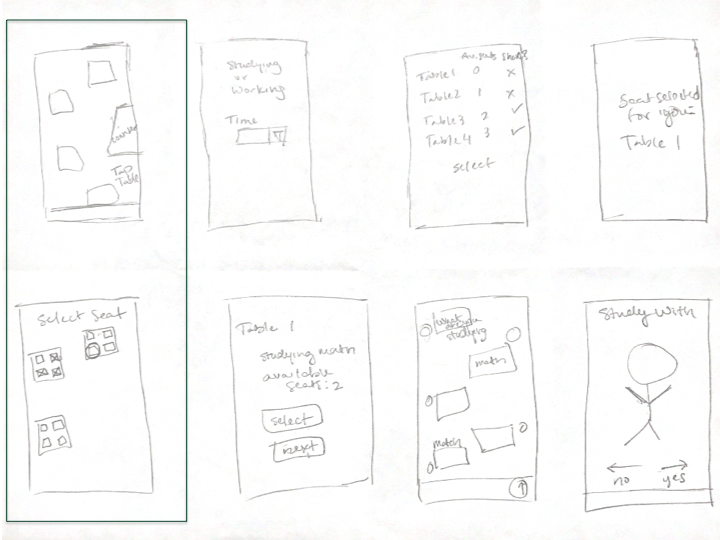 counter
Tap
Table
Studying
or
Working
Time
Av. Seats Study?
Table 1 0 x
Table 2 1 x
Table 3 2 ✓
Table 4 3 ✓
select
Seat selected
for you
Table 1
Select Seat
Table 1
studying math
available
seats: 2
select
studying
math
math
Study With
no yes